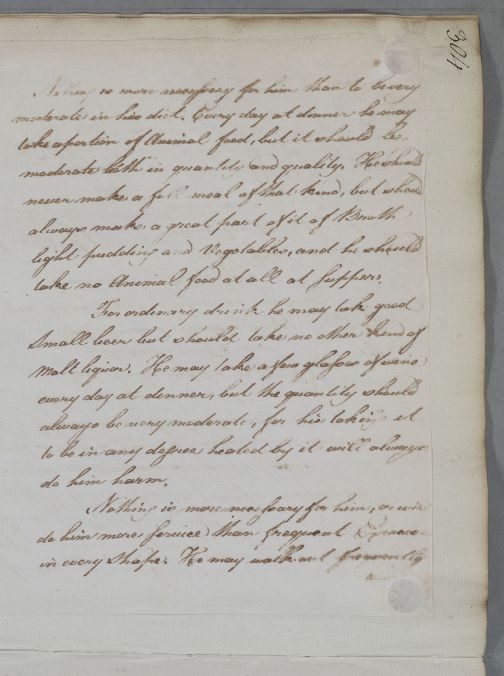 304
Nothing is more necessary for him than to be very
moderate in his diet. Every day at dinner he may
take a portion of Animal food, but it should be
moderate both in quantity and quality. He should
never make a full meal of that kind, but should
always make a great part of it of Broth
light pudding and Vegetables, and he should
take no Animal food at all at Supper.
For ordinary drink he may take good
Small beer but should take no other kind of
Malt liquor. He may take a few glasses of wine
every day at dinner, but the quantity should
always be very moderate, for his taking it
to be in any degree heated by it will always
do him harm.
Nothing is more necessary for him, or will
do him more Service than frequent Exercise
in every Shape. He may walk out frequently